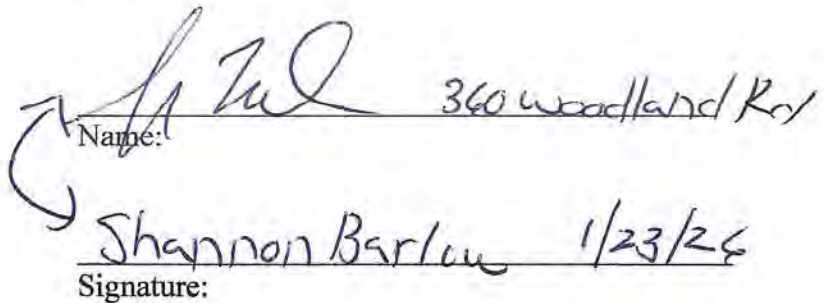 360 Woodland Rd
Name:
Shannon Barlow 1/23/26
Signature: